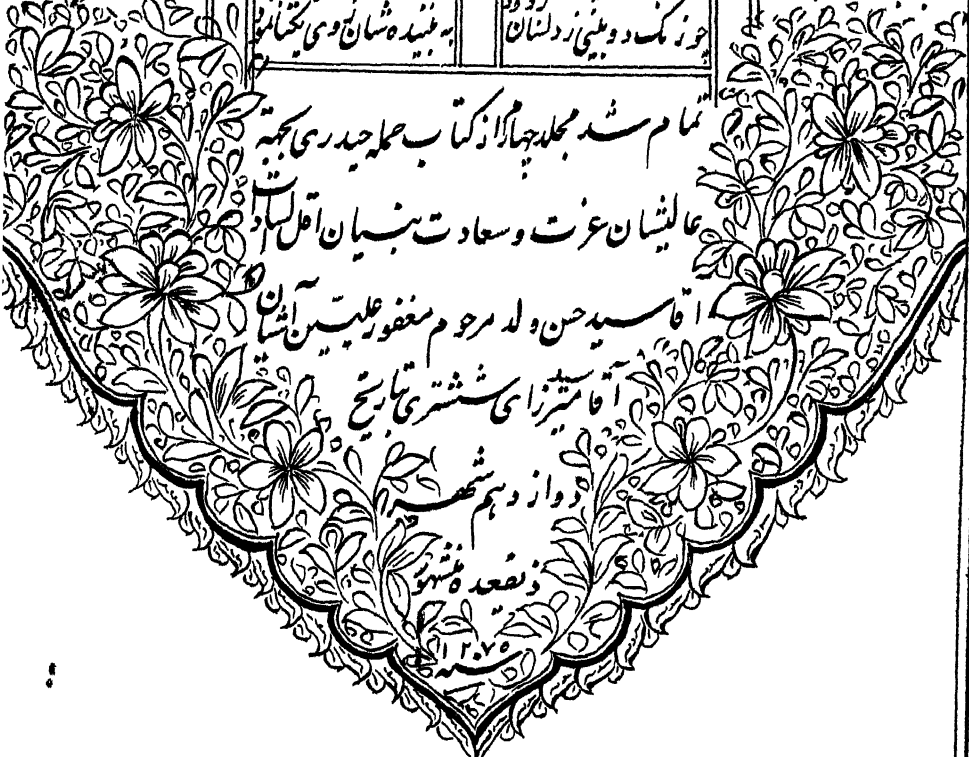 چو نزدیک دو بینی ز دلشان
به بیننده شان نس وی یکتا نمود
تمام شد مجلد چهارم از کتاب حمله حیدری بجهة
عالیشان عزت و سعادت بنیان اقل السادات
اقا سید حسن ولد مرحوم مغفور علیین آشیان
آقا سید میرزای ششتری بتاریخ
دوازدهم شهر
ذیقعده مشهور
سنه ۱۲۷۵